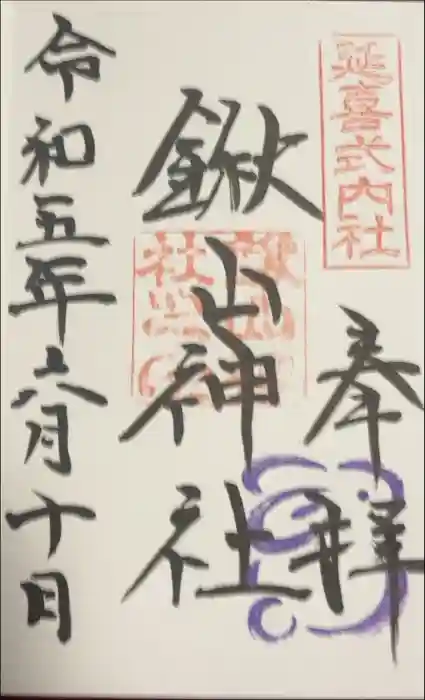 延喜式内社
奉拝
鍬山神社
令和五年六月十日